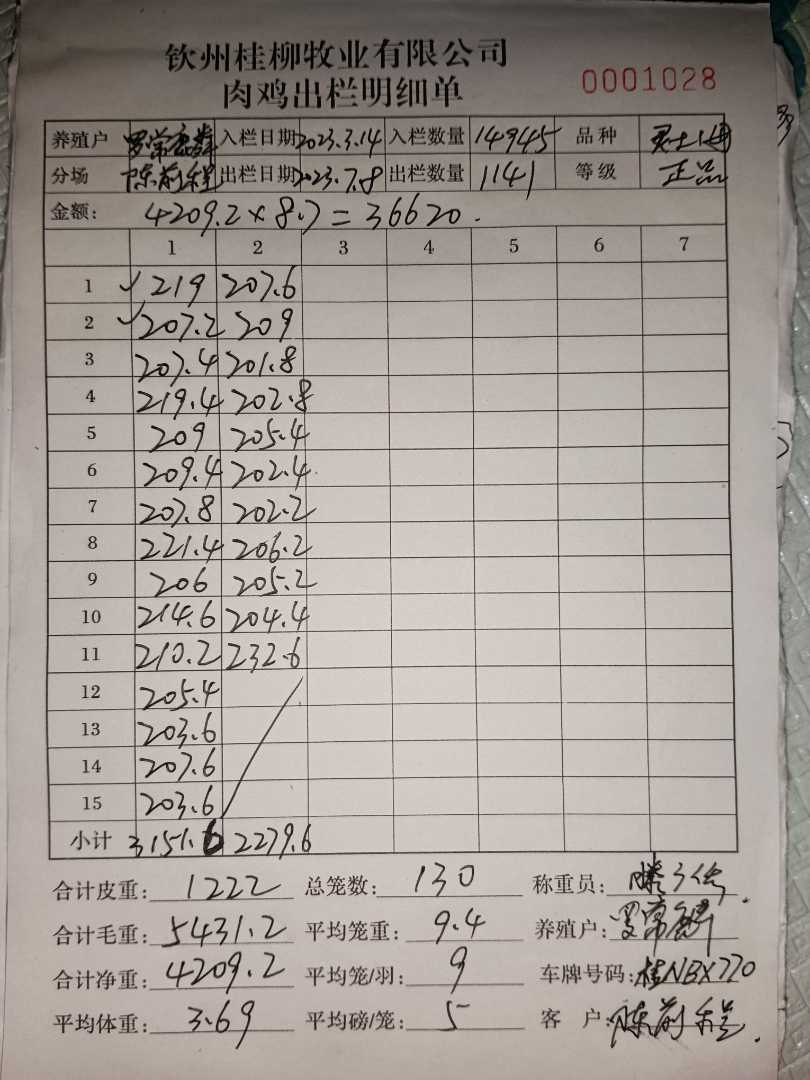 钦州桂柳牧业有限公司
肉鸡出栏明细单 0001028
养殖户 罗常 入栏日期 2023.3.14 入栏数量 14945 品种
分场 陈前程 出栏日期 2023.7.8 出栏数量 1141 等级 正品
金额: 4209.2×8.7=36620.
1 2 3 4 5 6 7
1 ✓219 207.6
2 ✓207.2 209
3 207.4 201.8
4 219.4 202.8
5 209 205.4
6 209.4 202.4
7 207.8 202.2
8 221.4 206.2
9 206 205.2
10 214.6 204.4
11 210.2 232.6
12 205.4
13 203.6
14 207.6
15 203.6
小计 3151.6 2279.6
合计皮重: 1222 总笼数: 130 称重员:
合计毛重: 5431.2 平均笼重: 9.4 养殖户: 罗常
合计净重: 4209.2 平均笼/羽: 9 车牌号码: 桂NBX770
平均体重: 3.69 平均磅/笼: 5 客 户: 陈前程.